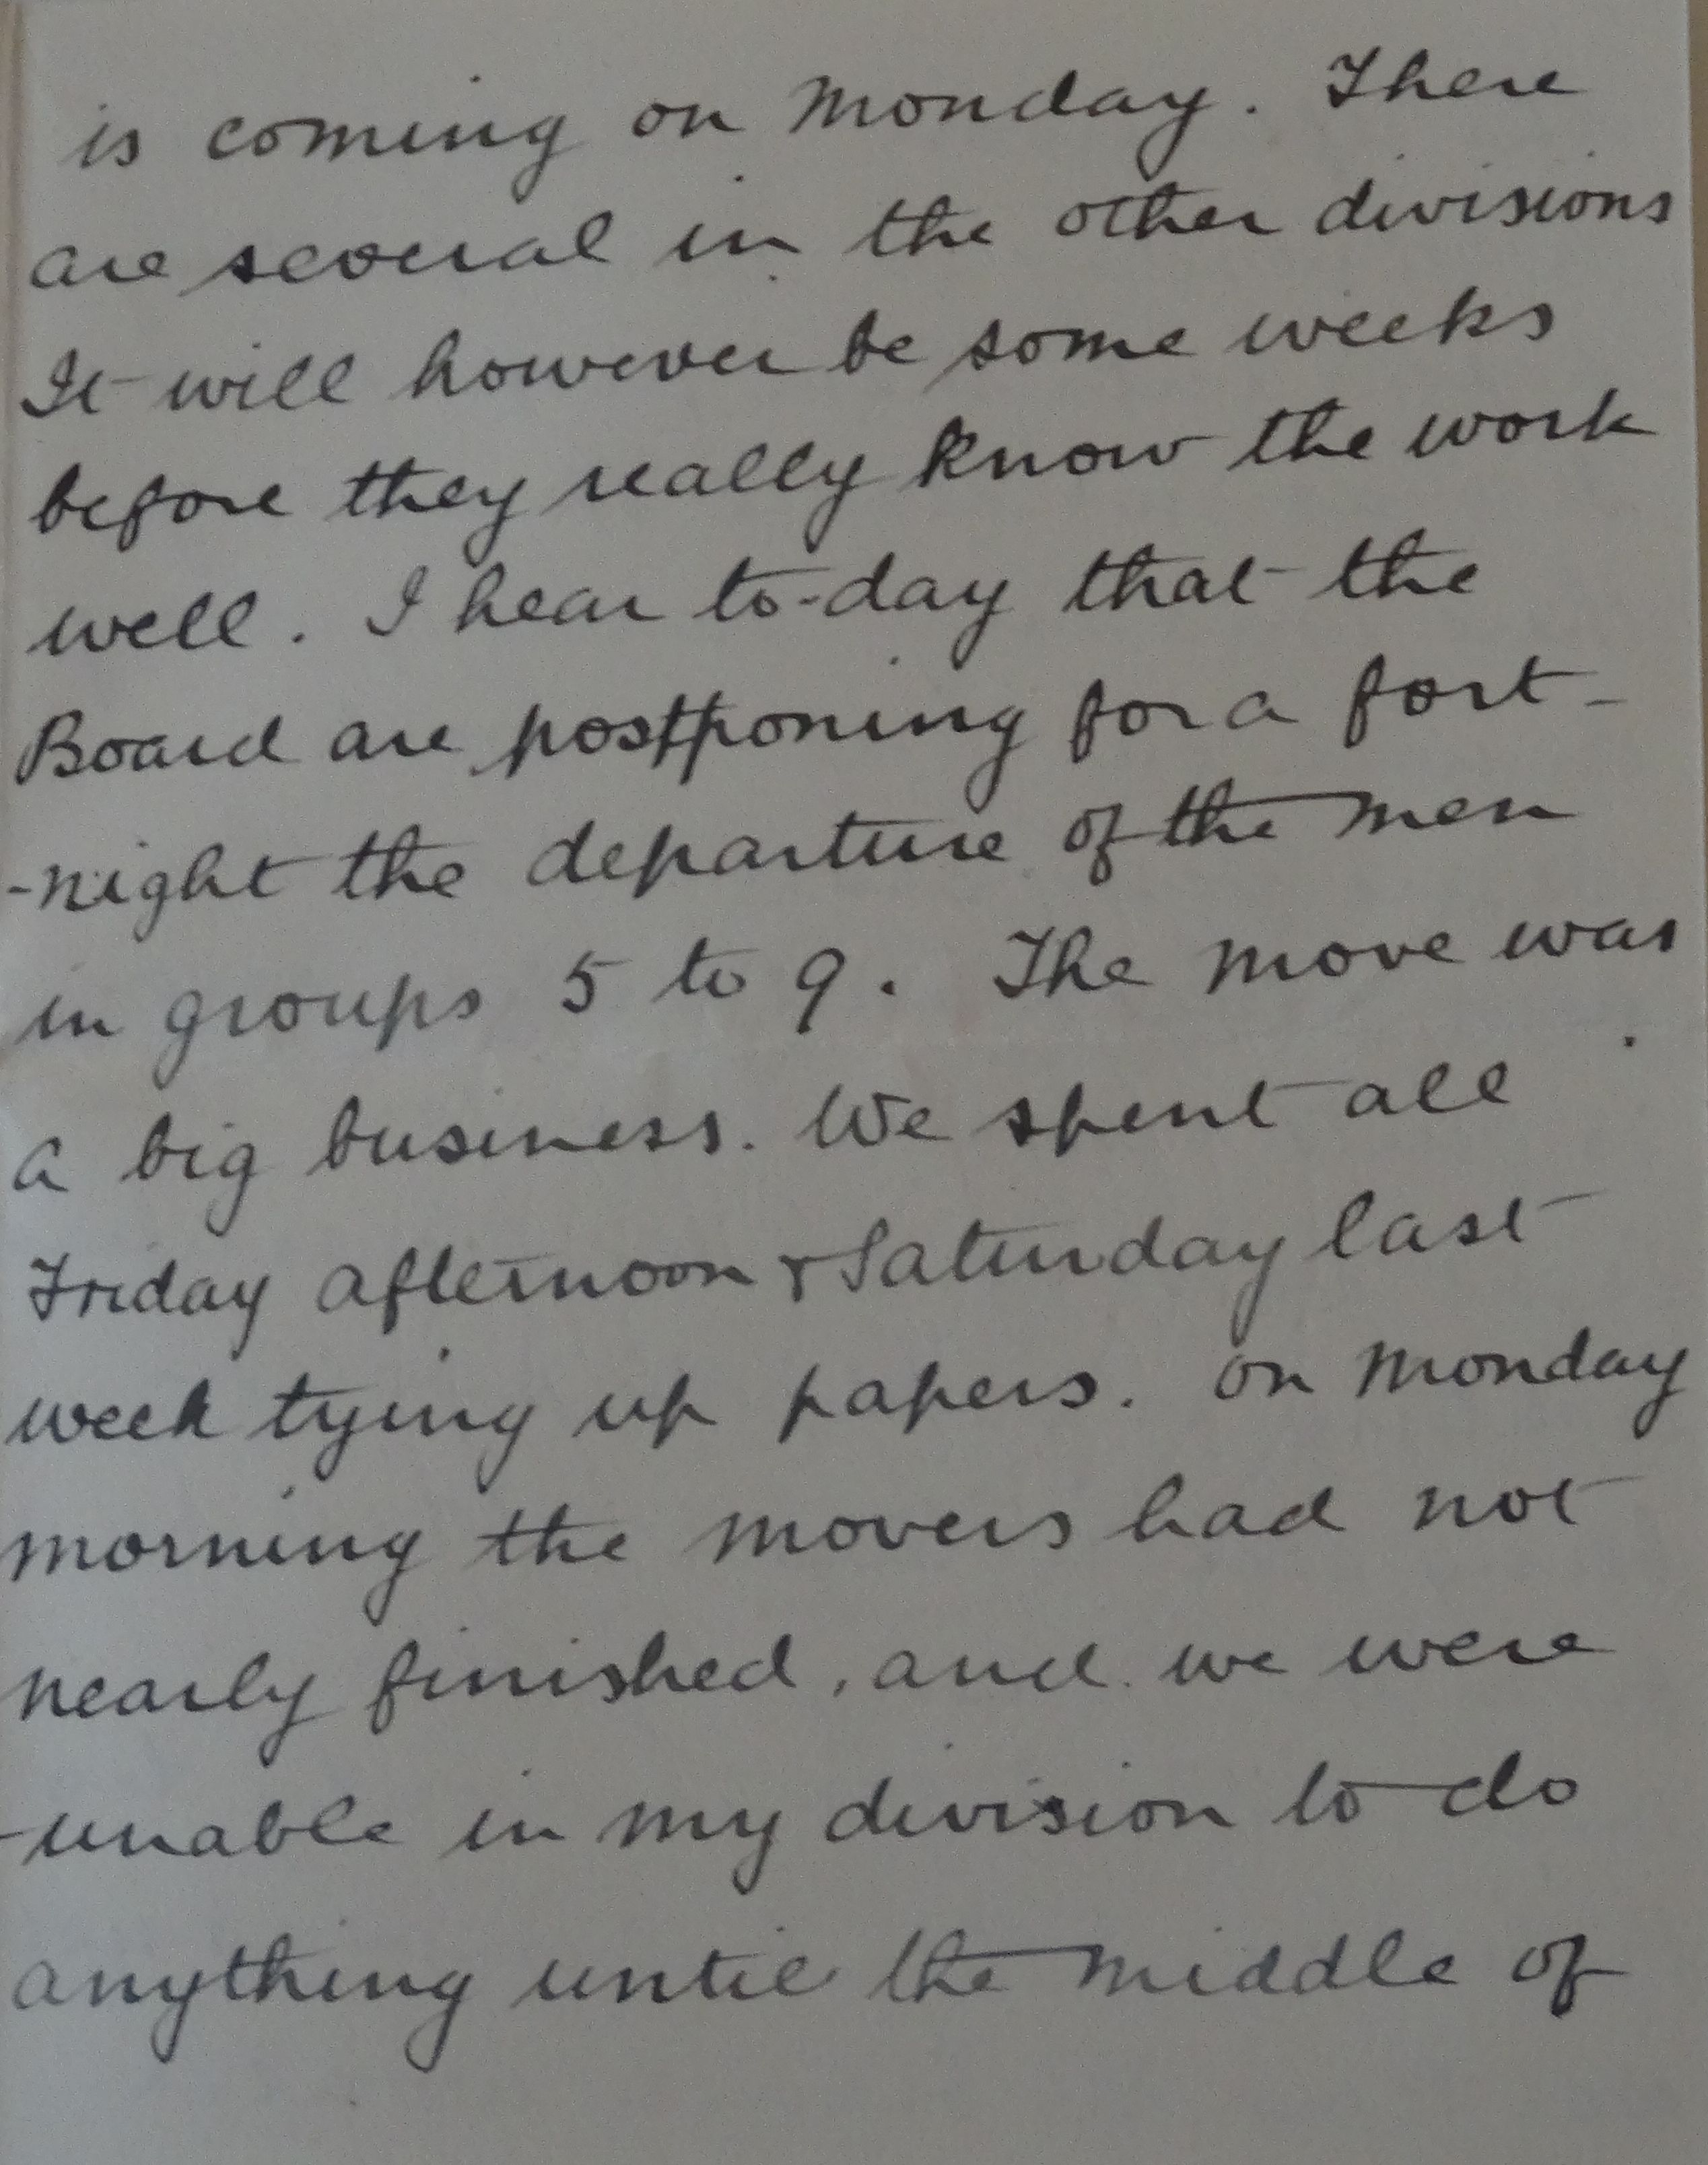 is coming on Monday. There
are several in the other divisions
It will however be some weeks
before they really know the work
well. I hear to-day that the
Board are postponing for a fort-
-night the departure of the men
in groups 5 to 9. The move was
a big business. We spent all
Friday afternoon & Saturday last
week tying up papers. On Monday
morning the movers had not
nearly finished, and we were
unable in my division to do
anything until the middle of